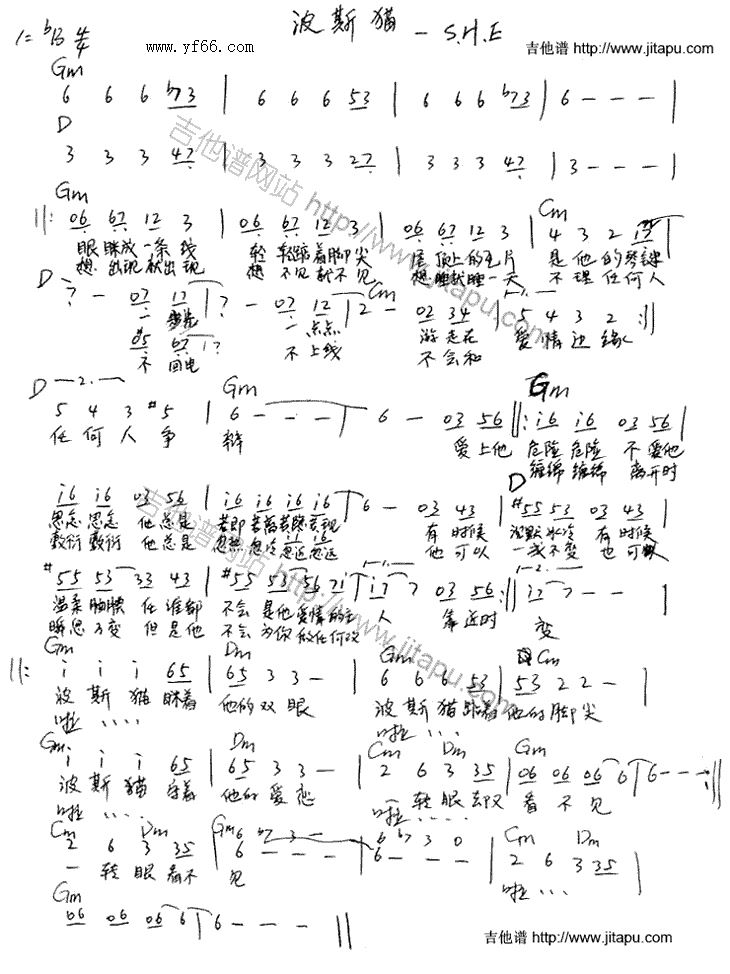 1=ᵇB 4/4 www.yf66.com 波斯猫 — S.H.E 吉他谱 http://www.jitapu.com
Gm
6 6 6 b73 | 6 6 6 53 | 6 6 6 b73 | 6 - - - |
D
3 3 3 47 | 3 3 3 27 | 3 3 3 47 | 3 - - - |
吉他谱网站 http://www.jitapu.com
Gm Cm
||: 06 67 12 3 | 06 67 12 3 | 06 67 12 3 | 4 3 2 17
眼眯放一条线 轻轻踮着脚尖 屋顶上的毛片 是他的琴键
想出现就出现 想不见就不见 想睡就睡一天 不理任何人
D Cm 1.
7 - 07 17 | 7 - 07 12 | 2 - 02 34 | 5 4 3 2 :||
一 一点点 游走在 爱情边缘
#05 67 17
不回电 不上线 不会和
D 2. Gm Gm
5 4 3 #5 | 6 - - - | 6 - 03 56 ||: i6 i6 03 56 |
任何人争 辩 爱上他 危险危险 不爱他
缠绵缠绵 离开时
D
i6 i6 03 56 | i6 i6 i6 i6 | 6 - 03 43 | #55 53 03 43 |
思念思念 他总是 若即若离若隐若现 有时候 沉默冰冷 有时候
敷衍敷衍 他总是 忽热忽冷忽近忽远 他可以 一成不变 也可以
吉他谱网站 http://www.jitapu.com
1. 2.
#55 53 33 43 | #55 53 56 7i | i7 7 03 56 :|| i7 7 - - |
温柔腼腆 任谁都 不会是他爱情的主 人 靠近时 变
瞬息万变 但是他 不会为你做任何改
Gm Gm Cm
||: i i i 65 | 65 3 3 - | 6 6 6 53 | 53 2 2 - |
波斯猫眯着 他的双眼 波斯猫踮着 他的脚尖
啦.... 啦....
Gm Dm Cm Dm Gm
i i i 65 | 65 3 3 - | 2 6 3 35 | 06 06 06 6 | 6 - - - :||
波斯猫守着 他的爱恋 一转眼却又 看不见
啦.... 啦....
Cm Dm Gm Cm Dm
2 6 3 35 | 6 b7 3 - | 6 b7 3 0 | 2 6 3 35 |
6 - - - 6 - - -
一转眼看不 见 啦...
Gm
06 06 06 6 | 6 - - - ||
吉他谱 http://www.jitapu.com